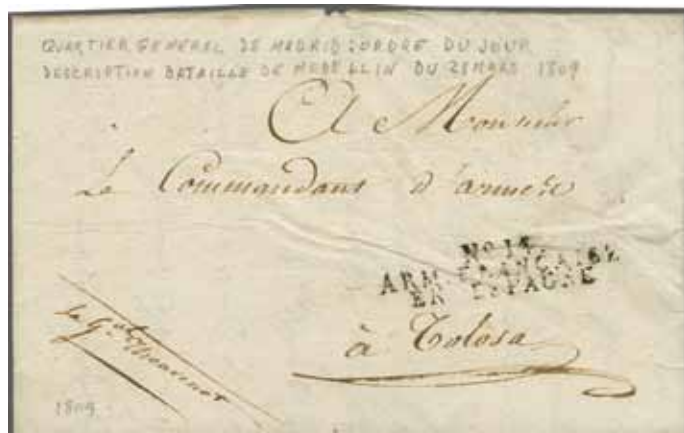 QUARTIER GENERAL DE MADRID: ORDRE DU JOUR
DESCRIPTION BATAILLE DE MEDELLIN DU 28 MARS 1809
A Monsieur
Le Commandant d'armes
No 14
ARM. FRANÇAISE
EN ESPAGNE
à Tolosa
le Gal Thouvenot
1809